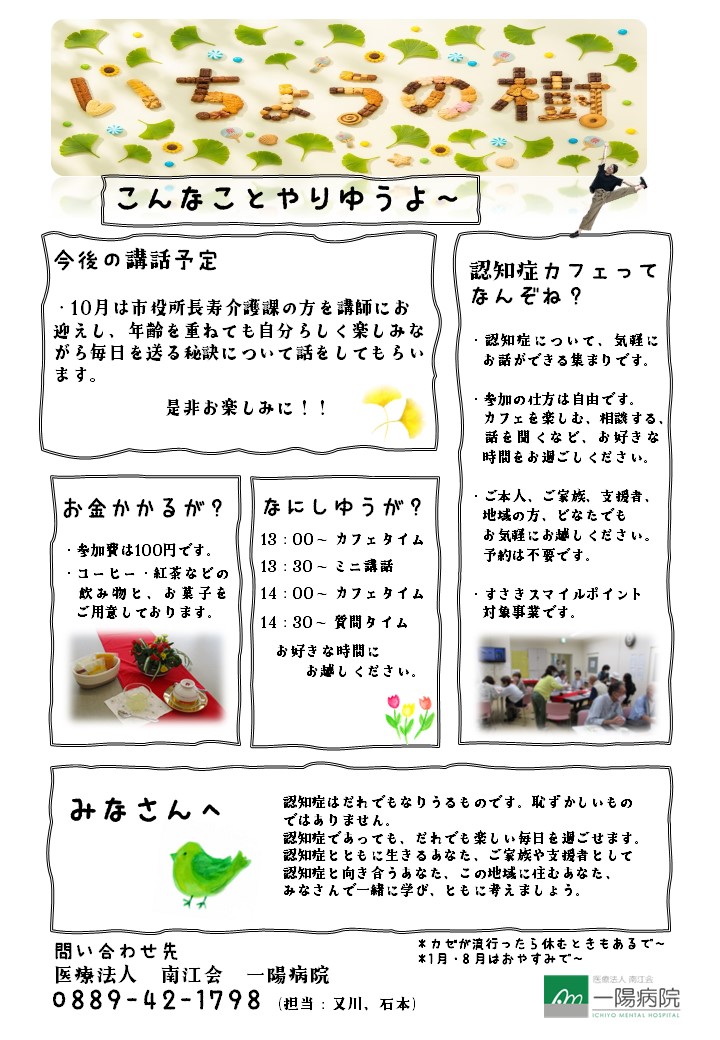 いちょうの樹
こんなことやりゆうよ～
今後の講話予定
・10月は市役所長寿介護課の方を講師にお
迎えし、年齢を重ねても自分らしく楽しみな
がら毎日を送る秘訣について話をしてもらい
ます。
是非お楽しみに！！
認知症カフェって
なんぞね？
・認知症について、気軽に
お話ができる集まりです。
・参加の仕方は自由です。
カフェを楽しむ、相談する、
話を聞くなど、お好きな
時間をお過ごしください。
・ご本人、ご家族、支援者、
地域の方、どなたでも
お気軽にお越しください。
予約は不要です。
・すさきスマイルポイント
対象事業です。
お金かかるが？
・参加費は100円です。
・コーヒー・紅茶などの
飲み物と、お菓子を
ご用意しております。
なにしゆうが？
13：00～ カフェタイム
13：30～ ミニ講話
14：00～ カフェタイム
14：30～ 質問タイム
お好きな時間に
お越しください。
みなさんへ
認知症はだれでもなりうるものです。恥ずかしいもの
ではありません。
認知症であっても、だれでも楽しい毎日を過ごせます。
認知症とともに生きるあなた、ご家族や支援者として
認知症と向き合うあなた、この地域に住むあなた、
みなさんで一緒に学び、ともに考えましょう。
*カゼが流行ったら休むときもあるで～
*1月・8月はおやすみで～
問い合わせ先
医療法人　南江会　一陽病院
0889-42-1798 （担当：又川、石本）
医療法人 南江会
一陽病院
ICHIYO MENTAL HOSPITAL